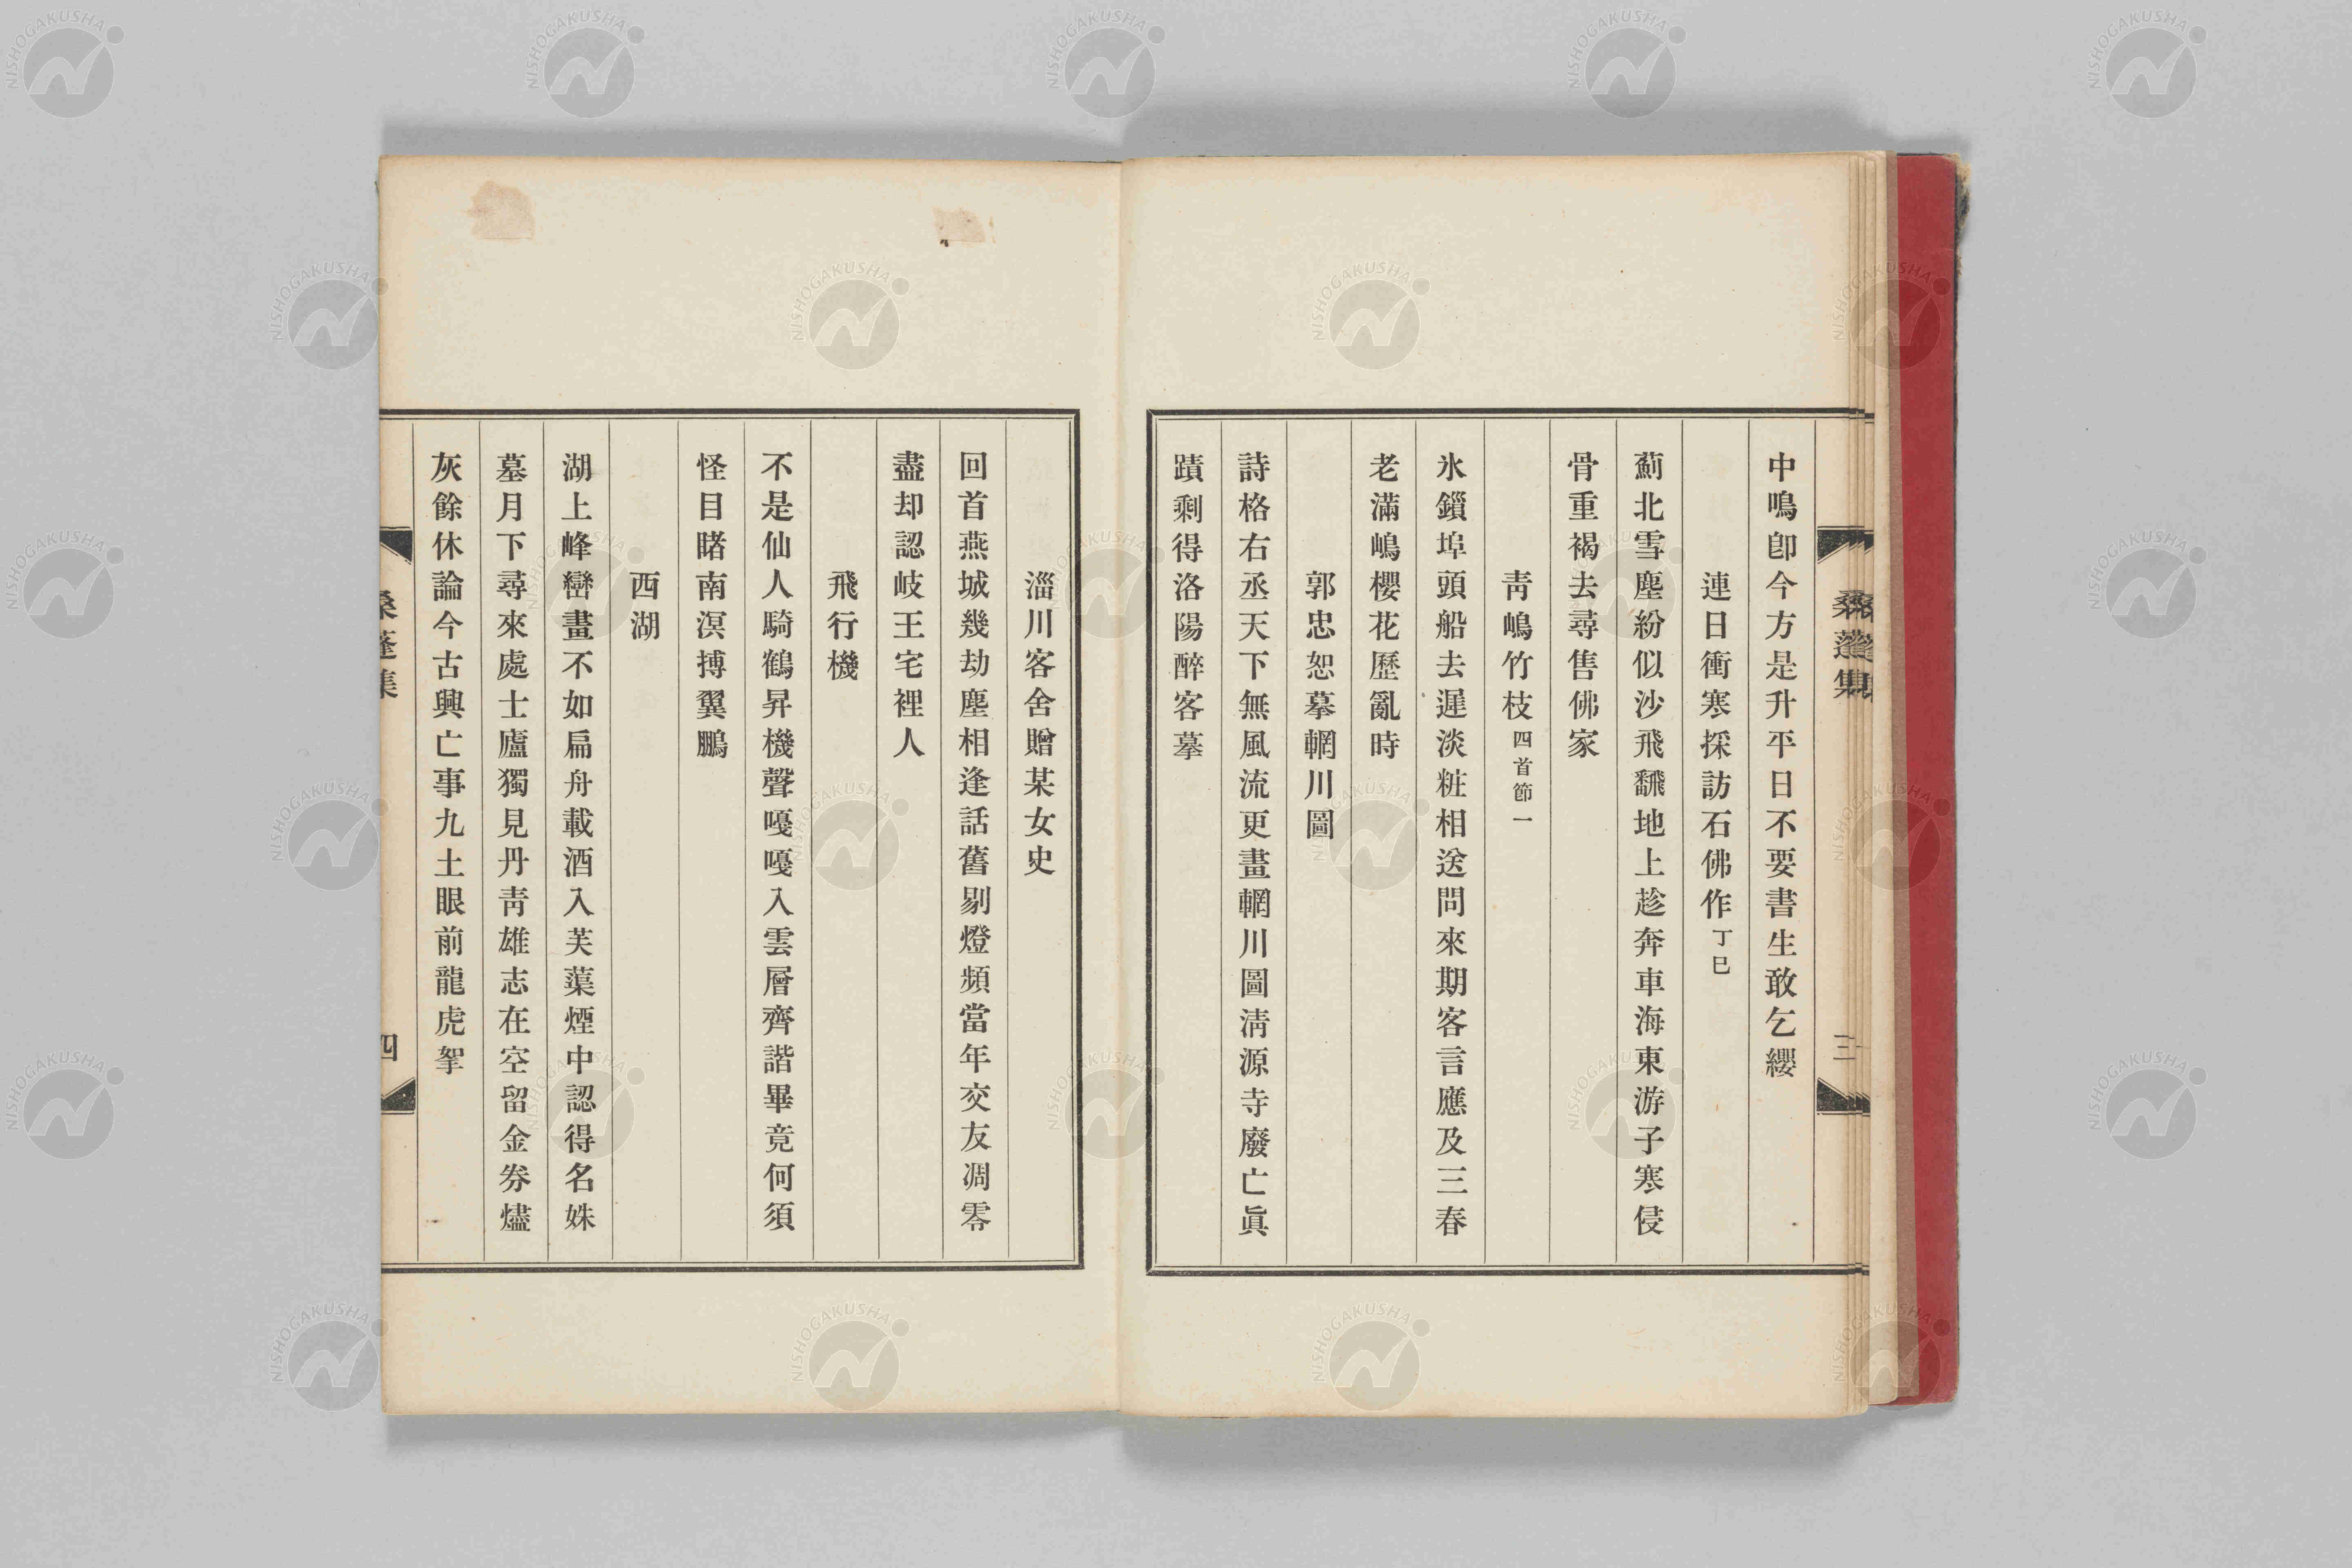 桑蓬集
三
中鳴卽今方是升平日不要書生敢乞纓
連日衝寒採訪石佛作丁巳
薊北雪塵紛似沙飛飜地上趁奔車海東游子寒侵
骨重褐去尋售佛家
靑嶋竹枝四首節一
氷鎻埠頭船去遲淡粧相送問來期客言應及三春
老滿嶋櫻花歷亂時
郭忠恕摹輞川圖
詩格右丞天下無風流更畫輞川圖淸源寺廢亡眞
蹟剩得洛陽醉客摹
淄川客舍贈某女史
回首燕城幾劫塵相逢話舊剔燈頻當年交友凋零
盡却認岐王宅裡人
飛行機
不是仙人騎鶴昇機聲嘎嘎入雲層齊諧畢竟何須
怪目睹南溟搏翼鵬
西湖
湖上峰巒畫不如扁舟載酒入芙蕖煙中認得名姝
墓月下尋來處士廬獨見丹靑雄志在空留金劵燼
灰餘休論今古興亡事九土眼前龍虎挐
桑蓬集
四
NISHOGAKUSHA